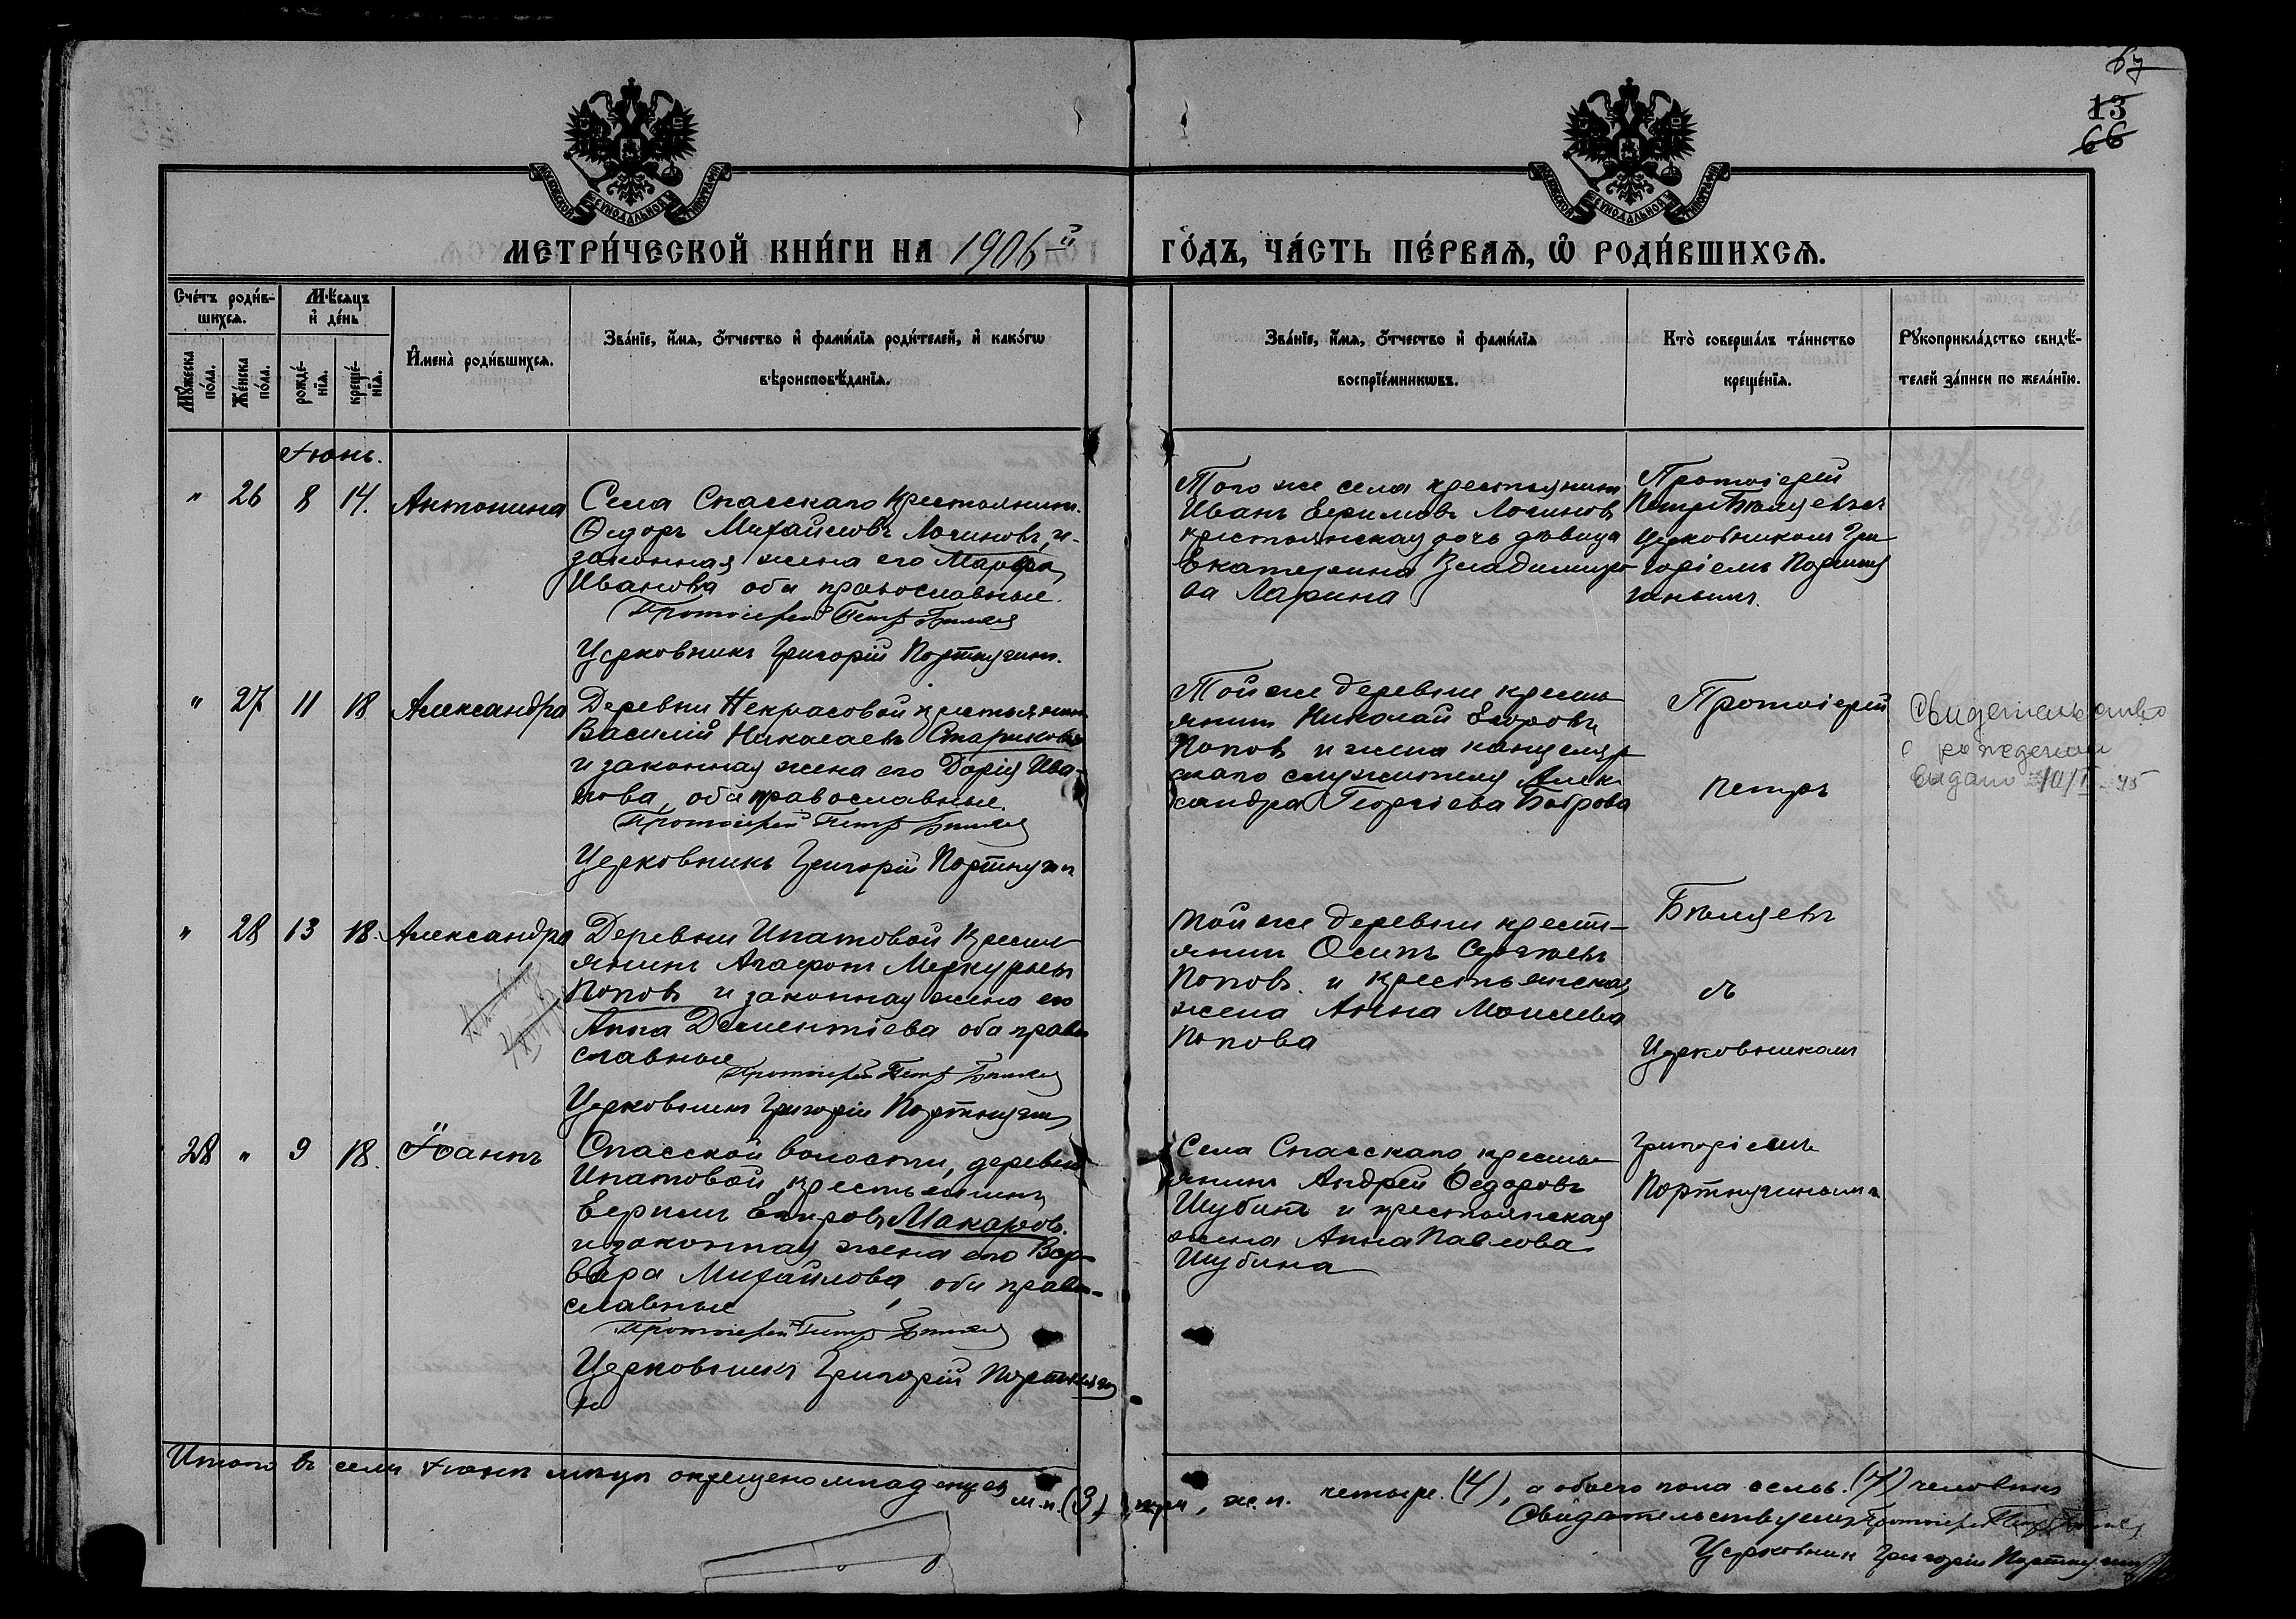 67
13
66
МОСКОВСКОЙ СѴНОДАЛЬНОЙ ТИПОГРАФІИ
МОСКОВСКОЙ СѴНОДАЛЬНОЙ ТИПОГРАФІИ
МЕТРИ́ЧЕСКОЙ КНИ́ГИ НА 1906й
ГО́ДЪ, ЧА́СТЬ ПЕ́РВАѦ, Ѡ҆ РОДИ́ВШИХСѦ.
Сче́тъ роди́в-
шихсѧ.
Мꙋ́жеска по́ла.
Же́нска по́ла.
Мѣ́сѧцъ
и҆ де́нь
рожде́-
нїѧ.
креще́-
нїѧ.
И҆мена̀ роди́вшихсѧ.
Зва́нїе, и҆́мѧ, ѻ҆́тчество и҆ фами́лїѧ роди́телей, и҆ како́гѡ
вѣроисповѣ́данїѧ.
Зва́нїе, и҆́мѧ, ѻ҆́тчество и҆ фами́лїѧ
воспрїе́мникѡвъ.
Кто̀ соверша́лъ та́инство
креще́нїѧ.
Рꙋкоприкла́дство свидѣ́-
телей за́писи по жела́нїю.
Іюнь.
" 26 8 14. Антонина
Села Спасскаго крестьянинъ
Ѳедоръ Михайловъ Логиновъ, и
законная жена его Марѳа
Иванова оба православные.
Протоіерей Петръ Бѣляев
Церковникъ Григорій Портнягинъ.
Того же села крестьянинъ
Иванъ Ефимовъ Логиновъ
крестьянская дочь дѣвица
Екатерина Владимиро-
ва Ларина
Протоіерей
Петръ Бѣляевъ съ
Церковникомъ Гри
горіемъ Портня
гинымъ.
" 27 11 18 Александра
Деревни Некрасовой крестьянинъ
Василій Николаевъ Стариковъ
и законная жена его Дарія Ива-
нова, оба православные.
Протоіерей Петръ Бѣляев
Церковникъ Григорій Портнягин
Той же деревни кресть
янинъ Николай Егоровъ
Поповъ и жена канцеляр
скаго служителя Алек
сандра Георгіева Боброва
Протоіерей
Петръ
Свидетельство
о рождении
выдано
" 28 13 18. Александра
Деревни Ипатовой кресть
янинъ Агафонъ Меркурьевъ
Поповъ и законная жена его
Анна Дементіева оба право
славные
Протоіерей Петръ Бѣляев
Церковникъ Григорій Портнягин
Той же деревни кресть-
янинъ Осипъ Сергѣевъ
Поповъ и крестьянская
жена Анна Моисеева
Попова
Бѣляевъ
съ
Церковникомъ
28 " 9 18. Іоаннъ
Спасской волости, деревни
Ипатовой крестьянинъ
Ефимъ Егоровъ Макаровъ
и законная жена его Вар
вара Михайлова, оба право-
славные
Протоіерей Петръ Бѣляев
Церковникъ Григорій Портняги
нъ
Села Спасскаго кресть
янинъ Андрей Ѳедоровъ
Шубинъ и крестьянская
жена Анна Павлова
Шубина
Григоріемъ
Портнягинымъ
Итого въ семъ Іюнѣ мѣсяцѣ окрещено младенцевъ м.п. (3) три, ж.п. четыре (4), а обоего пола семь (7) человѣкъ
Свидѣтельствуемъ Протоіерей Петръ Бѣляев
Церковник Григорій Портнягинъ